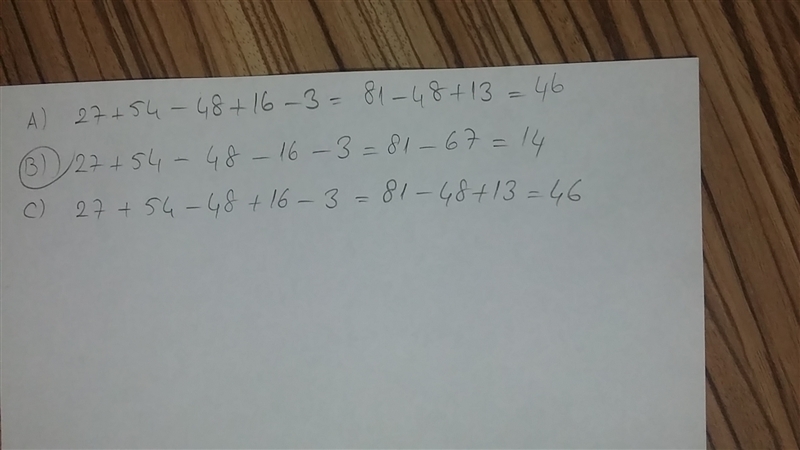 A) 27+54-48+16-3= 81-48+13=46
B) 27+54-48-16-3=81-67=14
C) 27+54-48+16-3=81-48+13=46